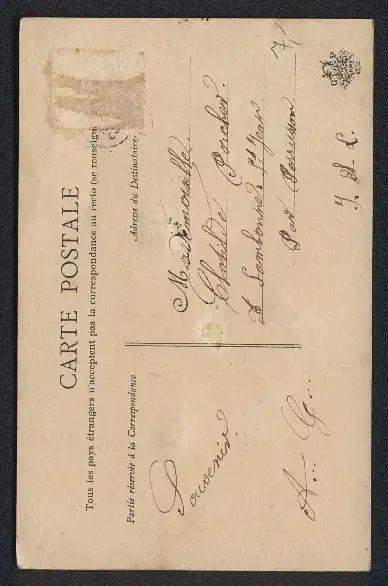 CARTE POSTALE
Tous les pays étrangers n'acceptent pas la correspondance au recto (se renseign
Partie réservée à la Correspondance
Adresse du Destinataire
Souvenir
A... G...
Mademoiselle
Clotilde Porcher.
St Jean
Par Perrusson
I. &. L.
G P